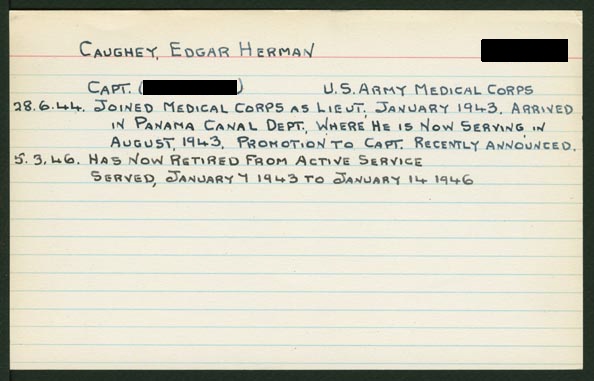 CAUGHEY, EDGAR HERMAN
CAPT. ( ) U.S. ARMY MEDICAL CORPS
28.6.44. JOINED MEDICAL CORPS AS LIEUT, JANUARY 1943. ARRIVED
IN PANAMA CANAL DEPT., WHERE HE IS NOW SERVING, IN
AUGUST, 1943. PROMOTION TO CAPT. RECENTLY ANNOUNCED.
5.3.46. HAS NOW RETIRED FROM ACTIVE SERVICE
SERVED, JANUARY 7 1943 TO JANUARY 14 1946